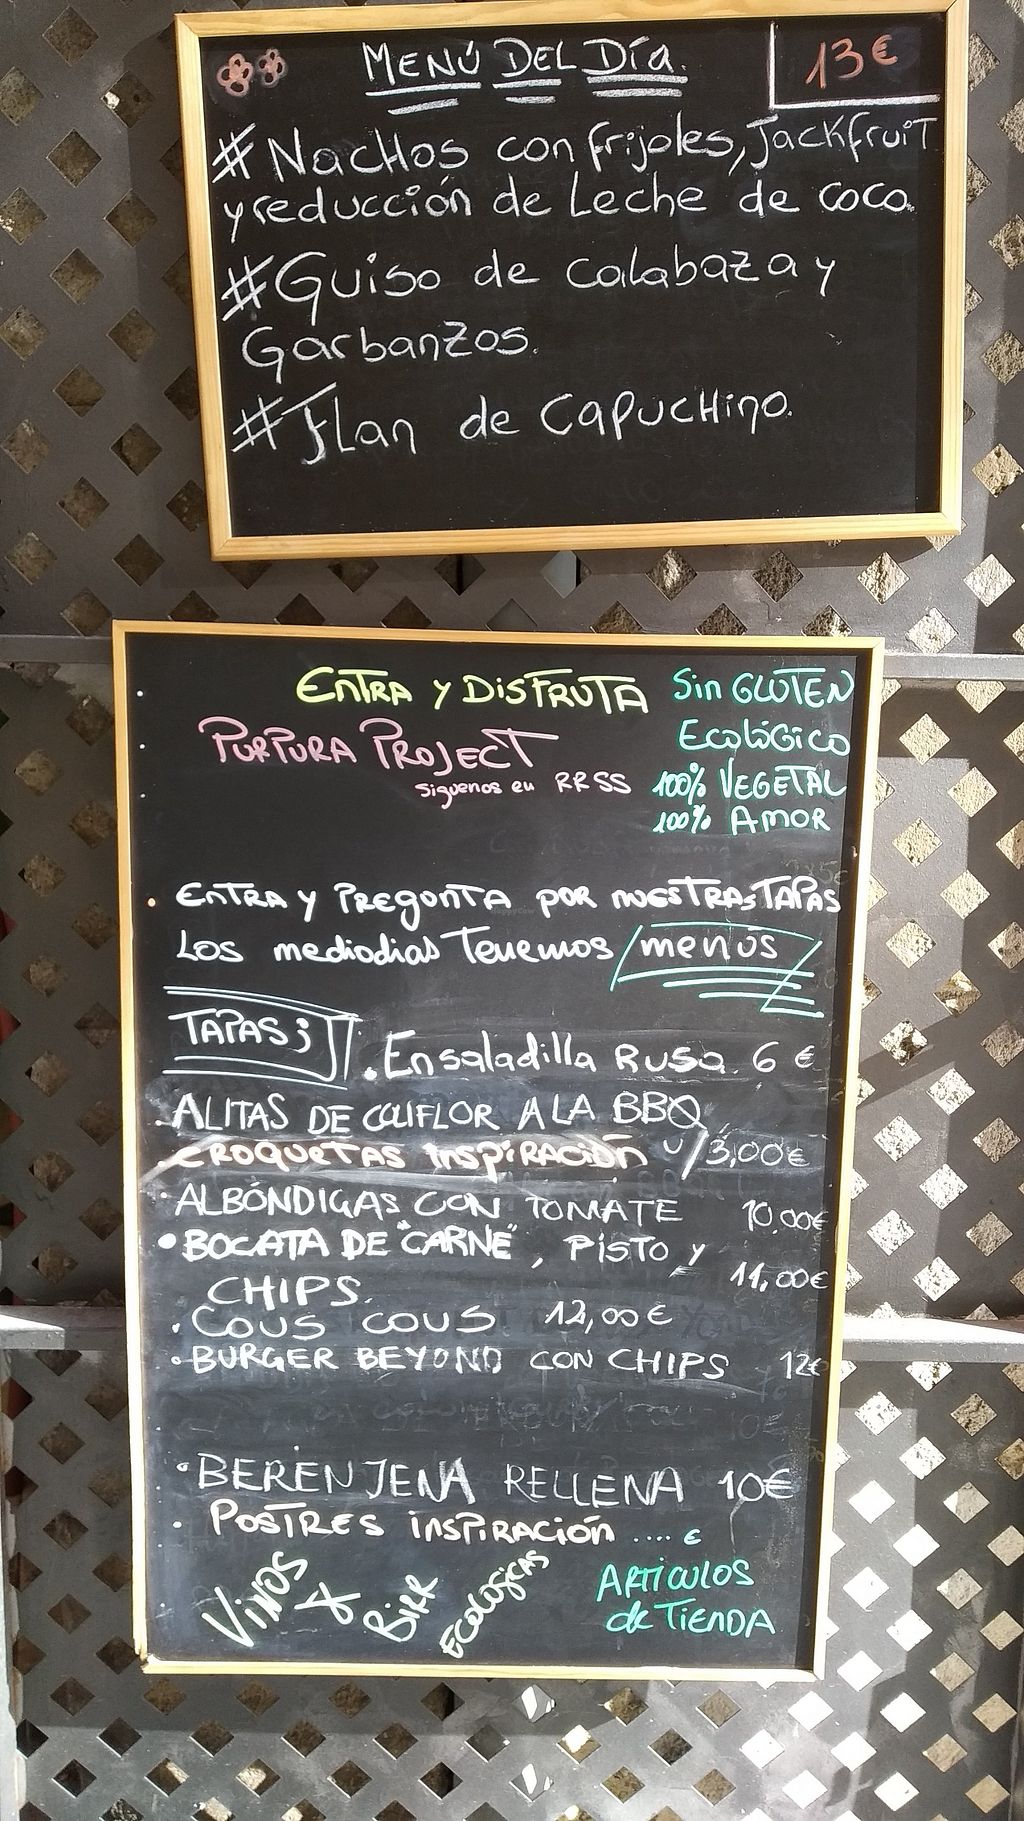 MENÚ DEL DÍA. 13€
# NACHOS con frijoles, Jackfruit
y reducción de Leche de coco.
# Guiso de calabaza y
Garbanzos.
# Flan de CAPUCHINO.
ENTRA Y DISFRUTA
PURPURA PROJECT
siguenos en RRSS
Sin GLUTEN
Ecológico
100% VEGETAL
100% AMOR
. ENTRA Y PREGONTA POR NUESTRAS TAPAS
Los mediodias Tenemos menús
TAPAS;
. Ensaladilla Rusa 6 €
. ALITAS DE COLIFLOR A LA BBQ
. CROQUETAS INSPIRACIÓN U/3,00€
. ALBÓNDIGAS CON TOMATE 10,00€
. BOCATA DE "CARNE", PISTO Y
CHIPS. 11,00€
. COUS COUS 12,00€
. BURGER BEYOND CON CHIPS 12€
. BERENJENA RELLENA 10€
. POSTRES INSPIRACIÓN .... €
VINOS Y BIRR ECOLÓGICAS
ARTICULOS
de TIENDA